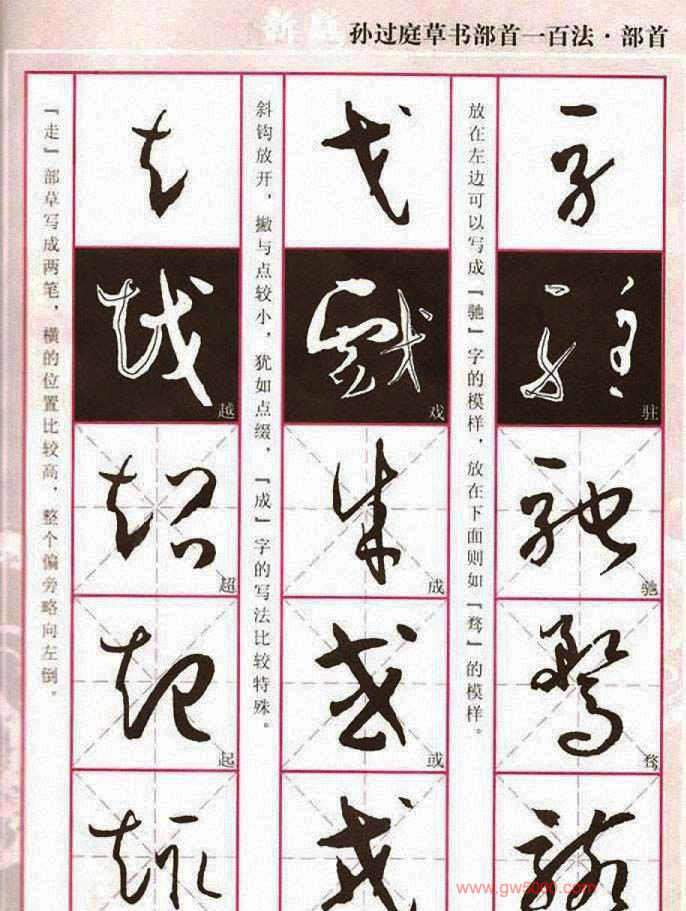 孙过庭草书部首一百法·部首
放在左边可以写成『驰』字的模样，放在下面则如『骛』的模样。
驻
驰
骛
斜钩放开，撇与点较小，犹如点缀，『成』字的写法比较特殊。
戏
成
或
『走』部草写成两笔，横的位置比较高，整个偏旁略向左倒。
越
超
起
www.gw5000.com